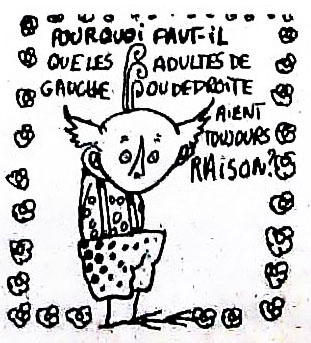 POURQUOI FAUT-IL
QUE LES ADULTES DE
GAUCHE OU DE DROITE
AIENT
TOUJOURS
RAISON?